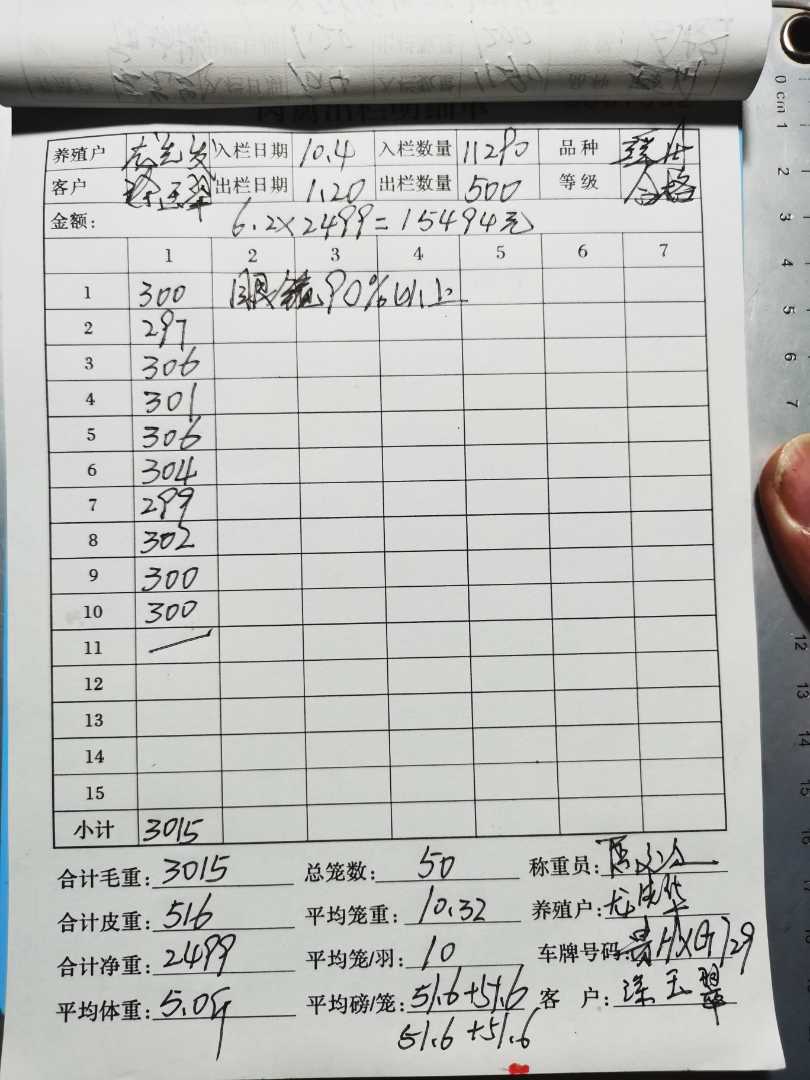 养殖户 入栏日期 10.4 入栏数量 11290 品种
客户 出栏日期 1.20 出栏数量 500 等级 合格
金额: 6.2×2499=15494元
1 2 3 4 5 6 7
1 300 眼镜90%以上
2 297
3 306
4 301
5 306
6 304
7 299
8 302
9 300
10 300
11
12
13
14
15
小计 3015
合计毛重: 3015 总笼数: 50 称重员:
合计皮重: 516 平均笼重: 10.32 养殖户:
合计净重: 2499 平均笼/羽: 10 车牌号码:
平均体重: 平均磅/笼: 51.6+51.6 客 户:
51.6+51.6
0 cm 1
2
3
4
5
6
7
12
13
14
15